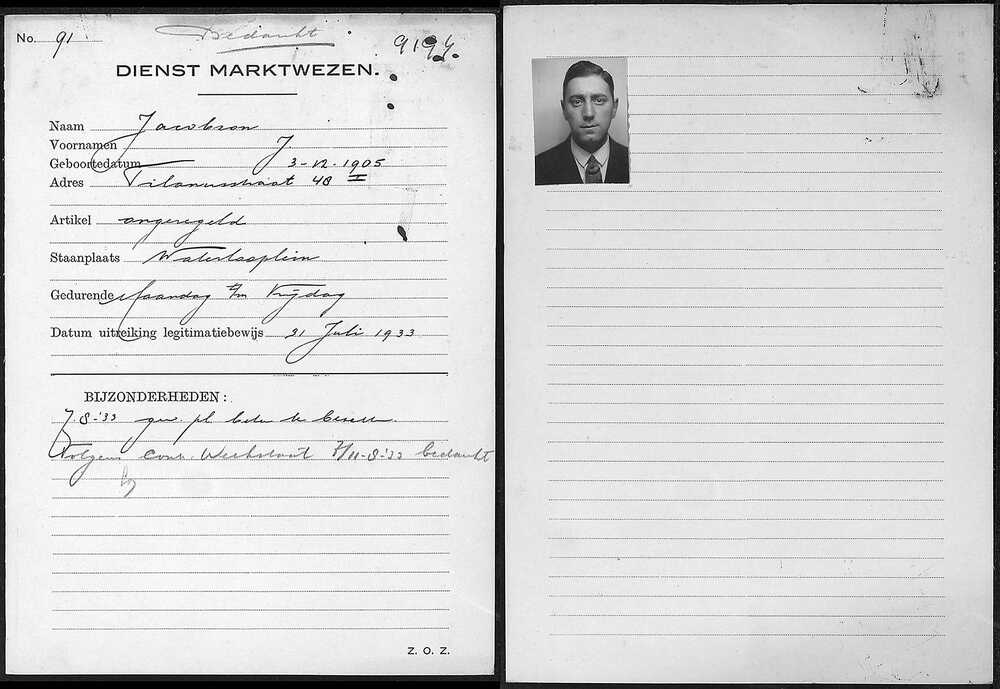 No. 91
Bedankt
DIENST MARKTWEZEN.
Naam Jacobson
Voornamen J.
Geboortedatum 3-12-1905
Adres Tilanusstraat 48 I
Artikel ongeregeld
Staanplaats Waterlooplein
Gedurende Maandag t/m Vrijdag
Datum uitreiking legitimatiebewijs 21 Juli 1933
BIJZONDERHEDEN:
7.8-'33 gew. pl.
Volgens Contr. Weekstaat 7/11-8-'33 bedankt
Z. O. Z.